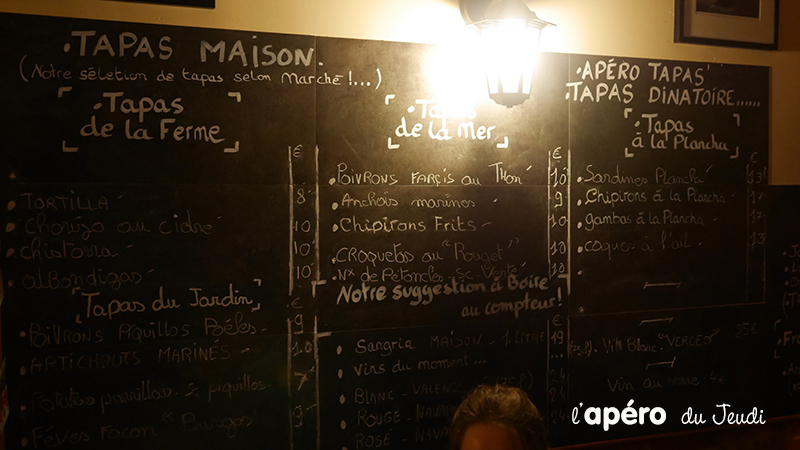 TAPAS MAISON.
(Notre séletion de tapas selon Marché!...)
Tapas
de la Ferme
€
TORTILLA 8
Chorizo au cidre 10
chistorra 10
albondigas 10
Tapas du Jardin
€
Poivrons Piquillos Poêlés 9
ARTICHAUTS MARINÉS 10
piquillos 7
Fèves Façon "Burgos 9
Tapas
de la Mer
€
Poivrons FARÇIS au Thon 10
Anchois marinés 9
Chipirons Frits 10
CROQUETAS au "Rouget" 10
Nx de Petoncles 10
Notre suggestion à Boire
au compteur!
Sangria MAISON - 1 LITRE 19
vins du moment...
BLANC -
ROUGE -
ROSÉ -
APÉRO TAPAS
TAPAS DINATOIRE......
Tapas
à la Plancha
€
Sardines Plancha
Chipirons à la Plancha
gambas à la Plancha
coques à l'ail
Vin Blanc "VERDEO" 25€
Vin au
l'apéro du Jeudi